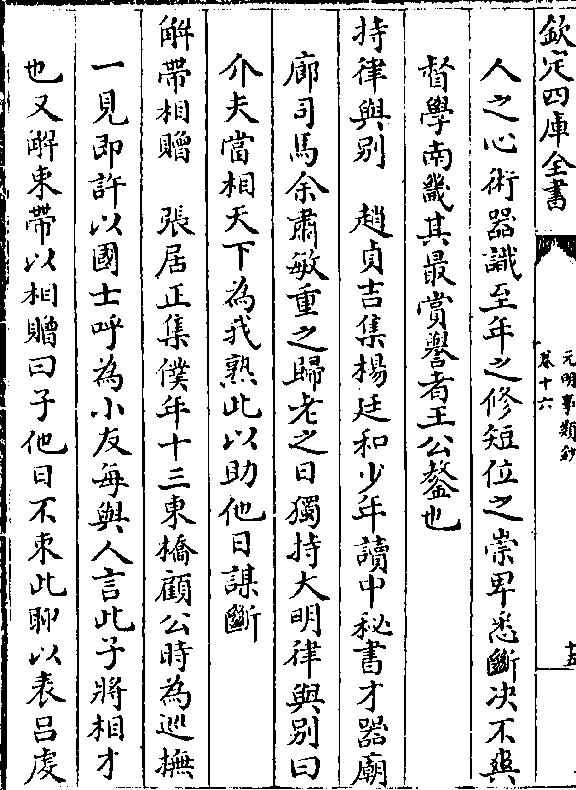 欽定四庫全書
元明事類鈔
卷十六
十五
人之心術器識至年之修短位之崇卑悉斷决不爽
督學南畿其最賞譽者王公鏊也
持律與别　趙貞吉集楊廷和少年讀中秘書才器廟
廊司馬余肅敏重之歸老之日獨持大明律與别曰
介夫當相天下為我熟此以助他日謀斷
解帶相贈　張居正集僕年十三東橋顧公時為巡撫
一見即許以國士呼為小友每與人言此子將相才
也又解束帶以相贈曰子他日不束此聊以表吕虔